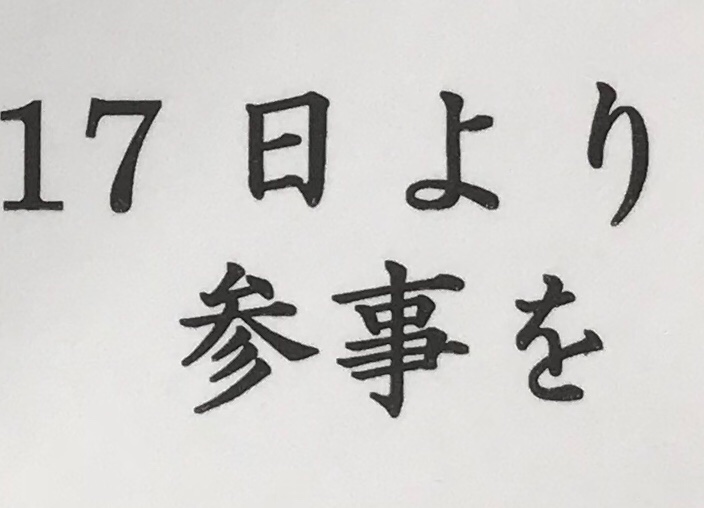 17日より
参事を